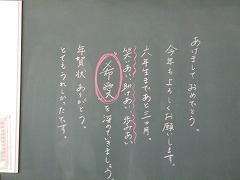 あけましておめでとう。
今年もよろしくお願いします。
六年生まであと三ヶ月。
笑いあい、助けあい、歩みあい
希愛を深めていきましょう。
年賀状ありがとう。
とてもうれしかったです。